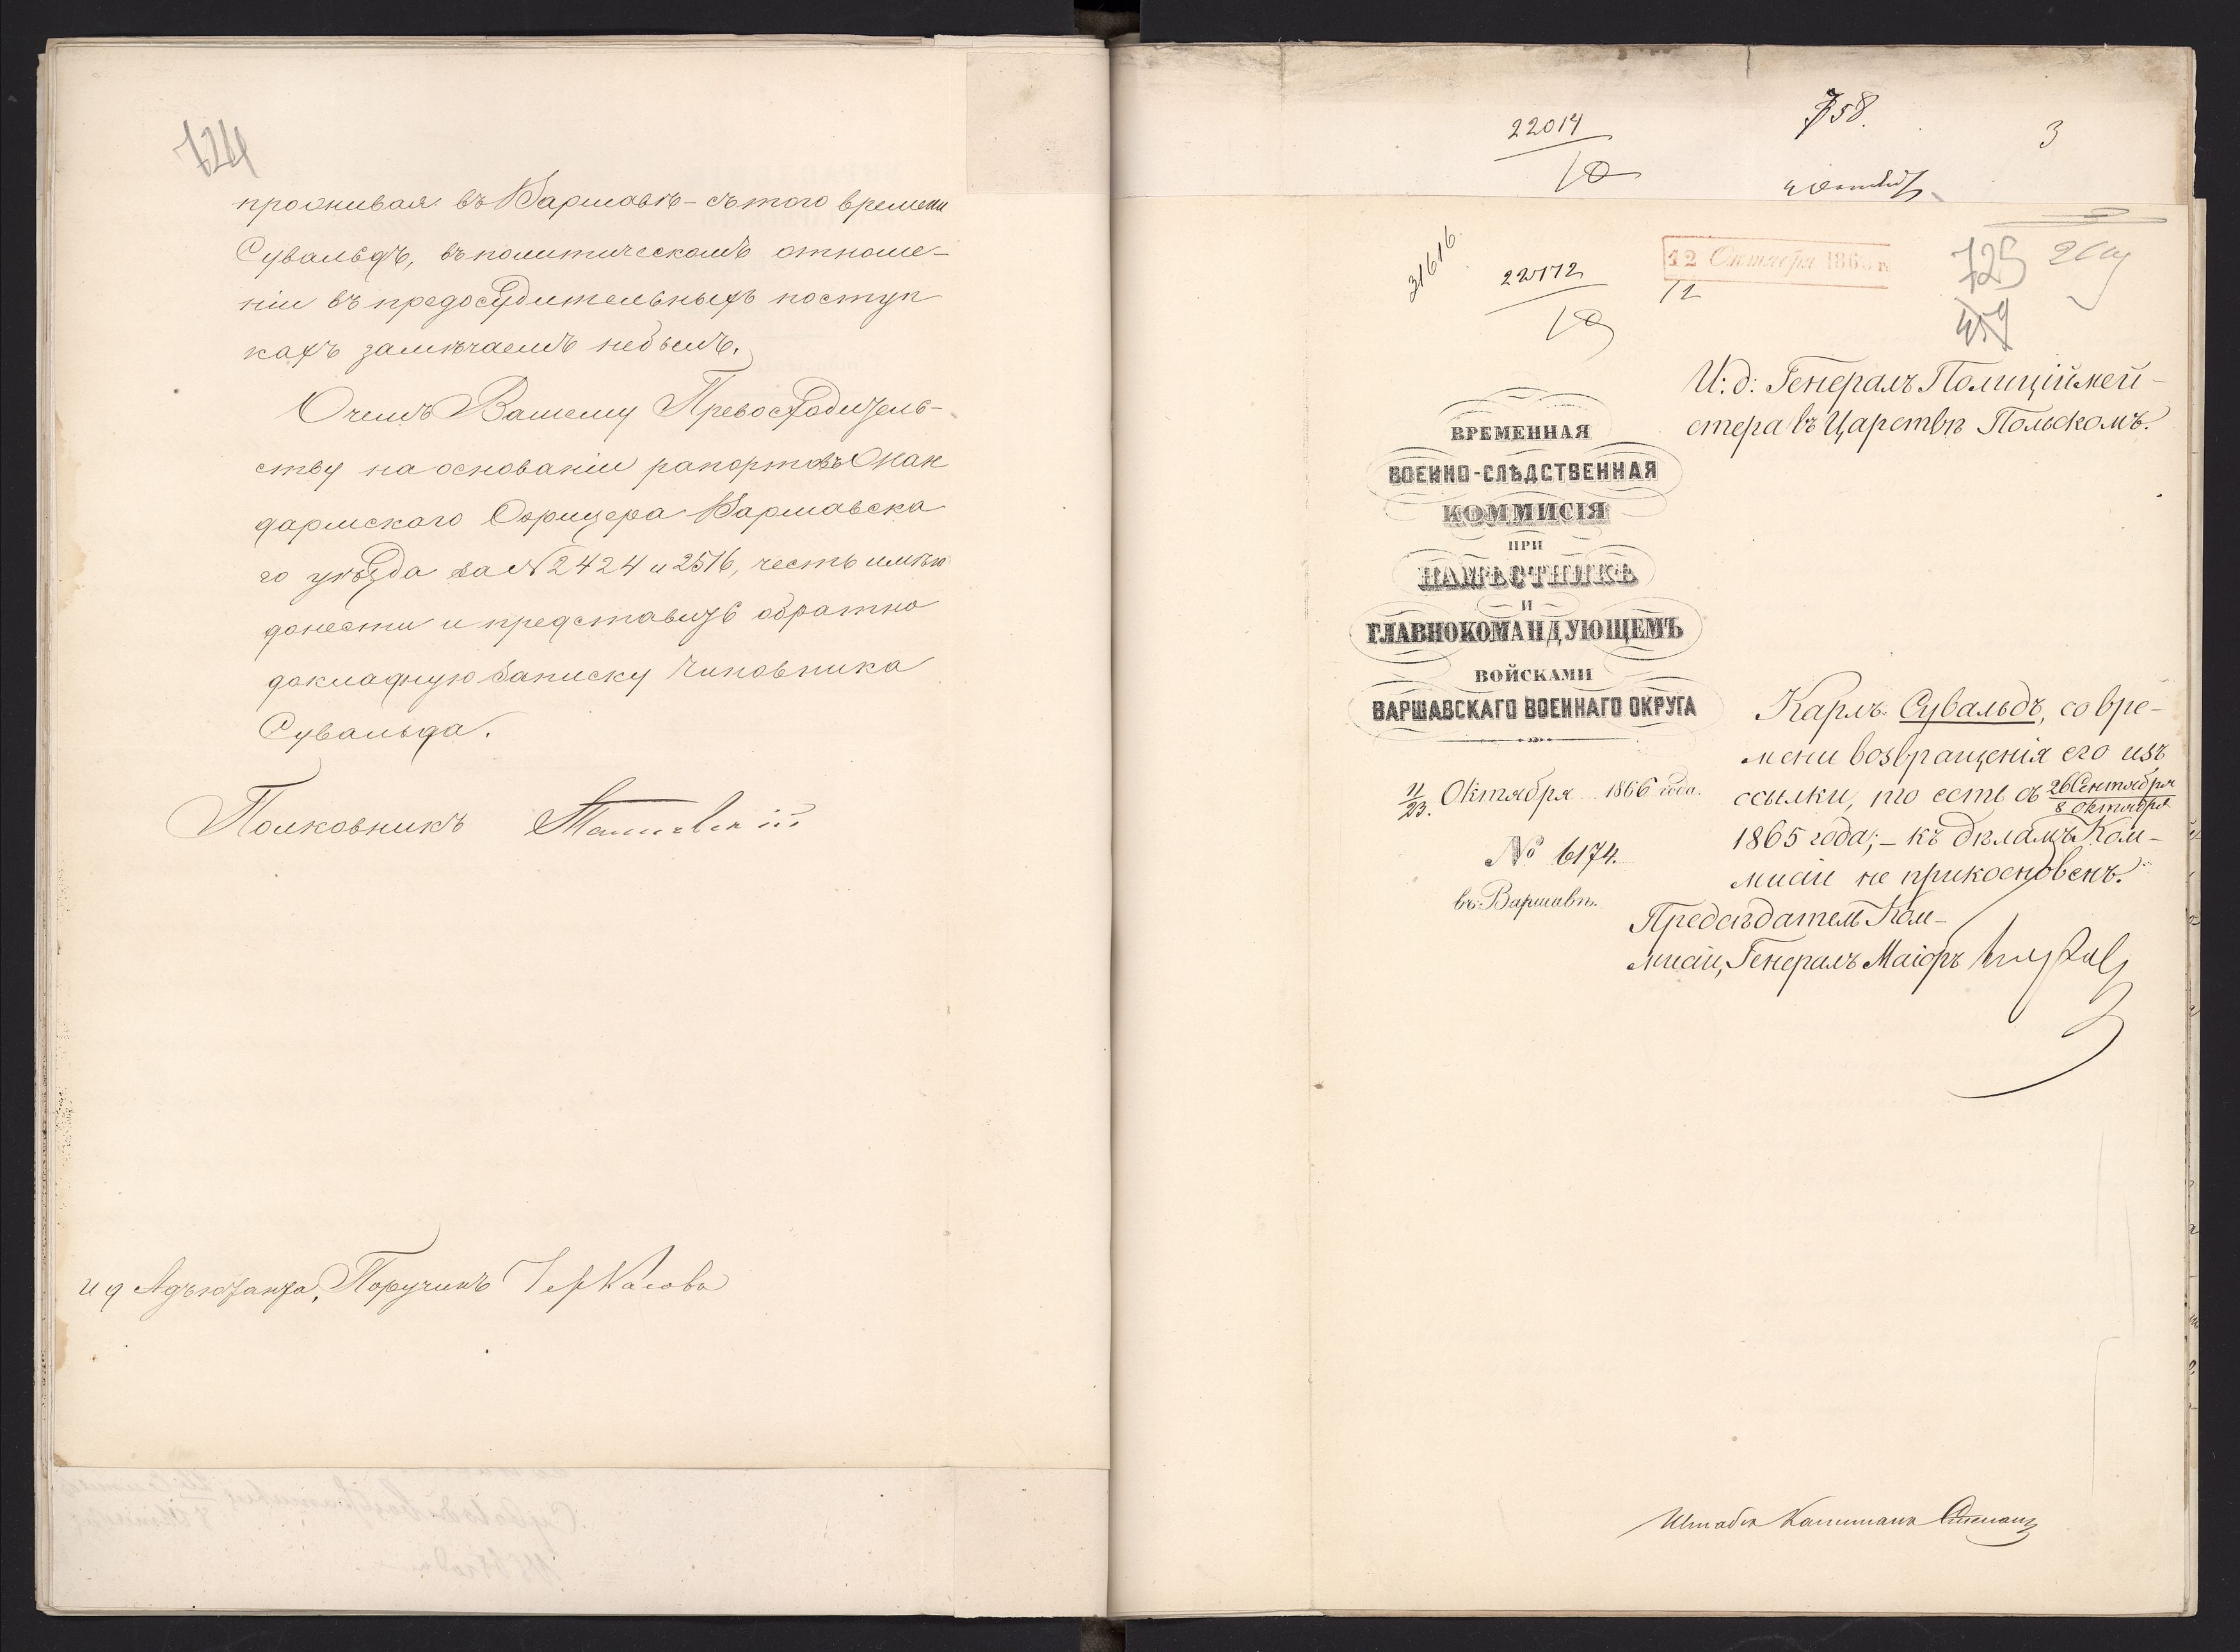 724
проживая въ Варшавѣ - съ того времени
Сувальдъ, въ политическомъ отноше-
ніи въ предосудительныхъ поступ
кахъ замѣчаемъ небылъ.
О чемъ Вашему Превосходитель-
ству на основаніи рапортовъ Жан
дармскаго Офицера Варшавска
го уѣзда за № 2424 и 2516, честь имѣю
донести и представить обратно
докладную записку Чиновника
Сувальда.
Полковникъ
и д Адъютанта, Поручикъ Черкасовъ
22014
10
758.
3
31616.
22172
10
12 Октября 186
12
725
459
И: д: Генералъ Полиціймей-
стера въ Царствѣ Польскомъ.
ВРЕМЕННАЯ
ВОЕННО-СЛѢДСТВЕННАЯ
КОММИСІЯ
ПРИ
НАМѢСТНИКѢ
И
ГЛАВНОКОМАНДУЮЩЕМЪ
ВОЙСКАМИ
ВАРШАВСКАГО ВОЕННАГО ОКРУГА
11/23. Октября 1866 года.
№ 6174.
въ Варшавѣ.
Карлъ Сувальдъ, со вре-
мени возвращенія его изъ
ссылки, то есть съ 26 Сентября / 8 Октября
1865 года; - къ дѣламъ Ком-
мисіи не прикосновенъ.
Предсѣдатель Ком-
мисіи, Генералъ Маіоръ
Штабсъ Капитанъ